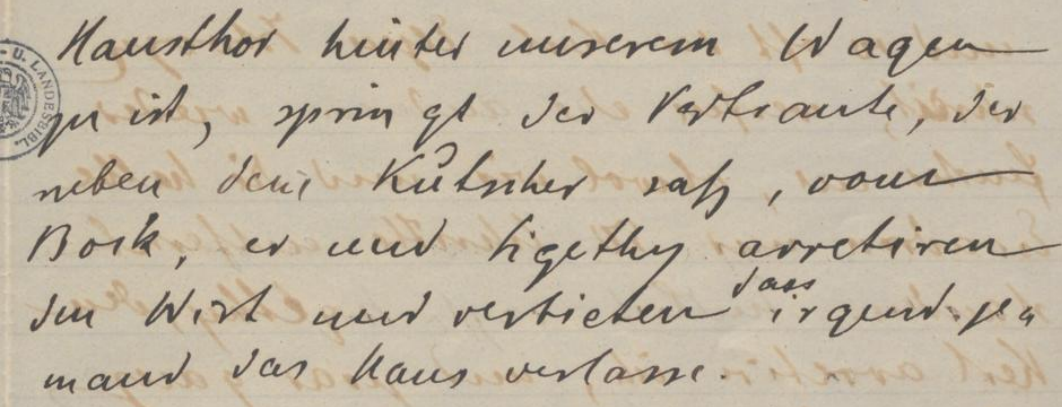 Hausthor hinter unserem Wagen
zu ist, springt der Vertraute, der
neben dem Kutscher saß, vom
Bock, er und Sigethy arretiren
den Wirt und verbieten dass irgend je
mand das Haus verlasse.
U. LANDESBIBL.